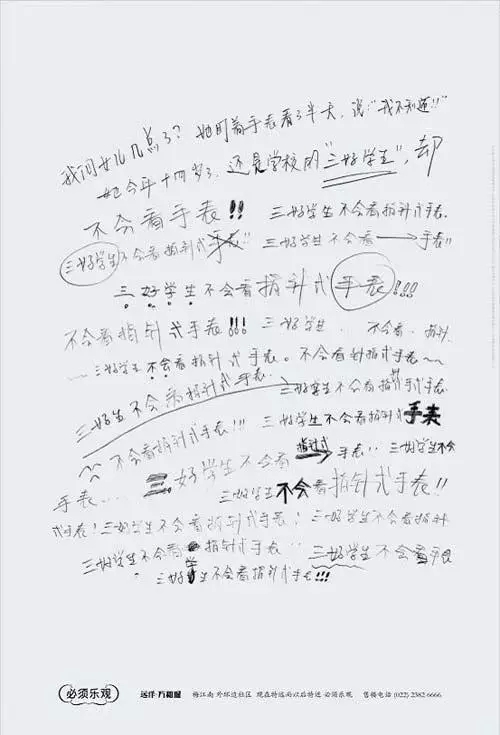 我问女儿几点了？她盯着手表看了半天，说："我不知道!!"
她今年十四岁了，还是学校的"三好学生"，却
不会看手表!! 三好学生不会看指针式手表.
三好学生不会看指针式手表!! 三好学生不会看→手表!!
三好学生不会看指针式手表!!!
不会看指针式手表!!! 三好学生. 不会看. 指针.
~三好学生不会看指针式手表。不会看针式手表~~
三好生不会看指针式手表. 三好学生不会看指针式手表.
三好学生不会看指针式手表
不会看指针式手表!!! 指针式
三好学生不会看→手表.. 三好学生不会
手表... 三好学生不会看指针式手表!!
式手表!三好学生不会看指针式手表! 三好学生不会看指针
三好学生不会看指针式手表.. 三好学生不会看手表
三好学生不会看指针式手表!!!
必须乐观 远洋·万和城 梅江南 外环边社区 现在特远而以后特近 必须乐观 售楼电话 (022) 2382 6666